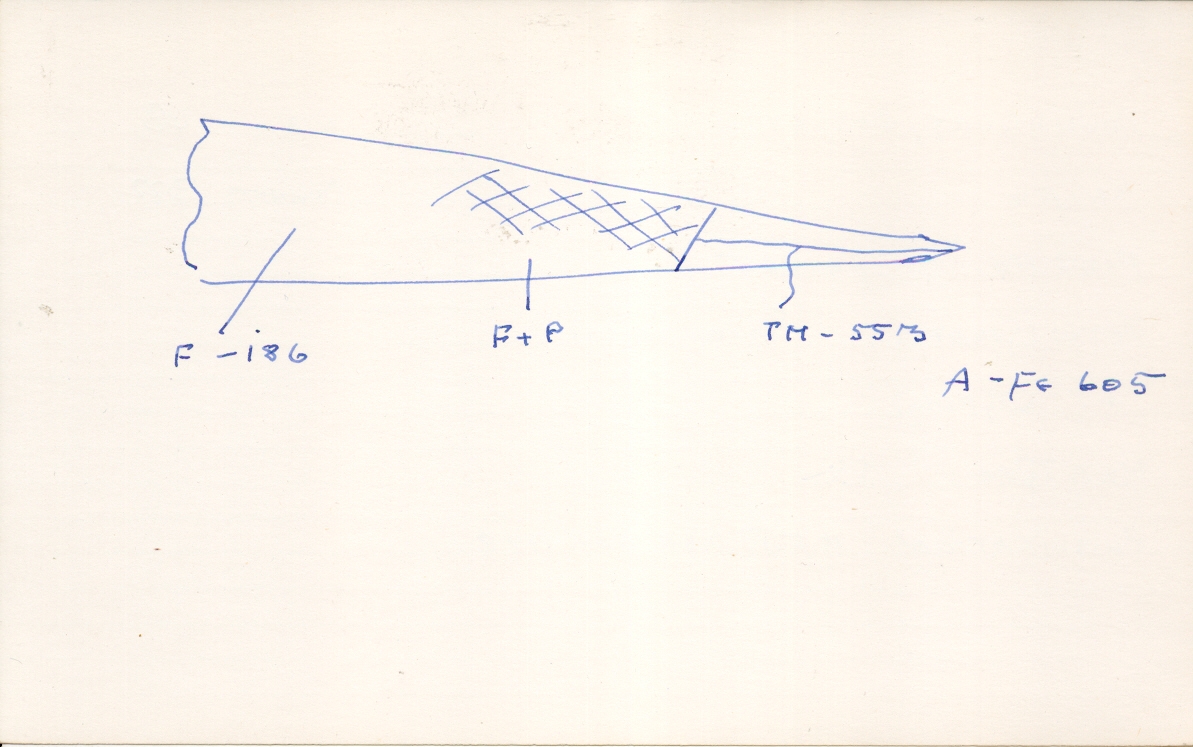 F - 186
F + P
TM - 553
A - Fe 605